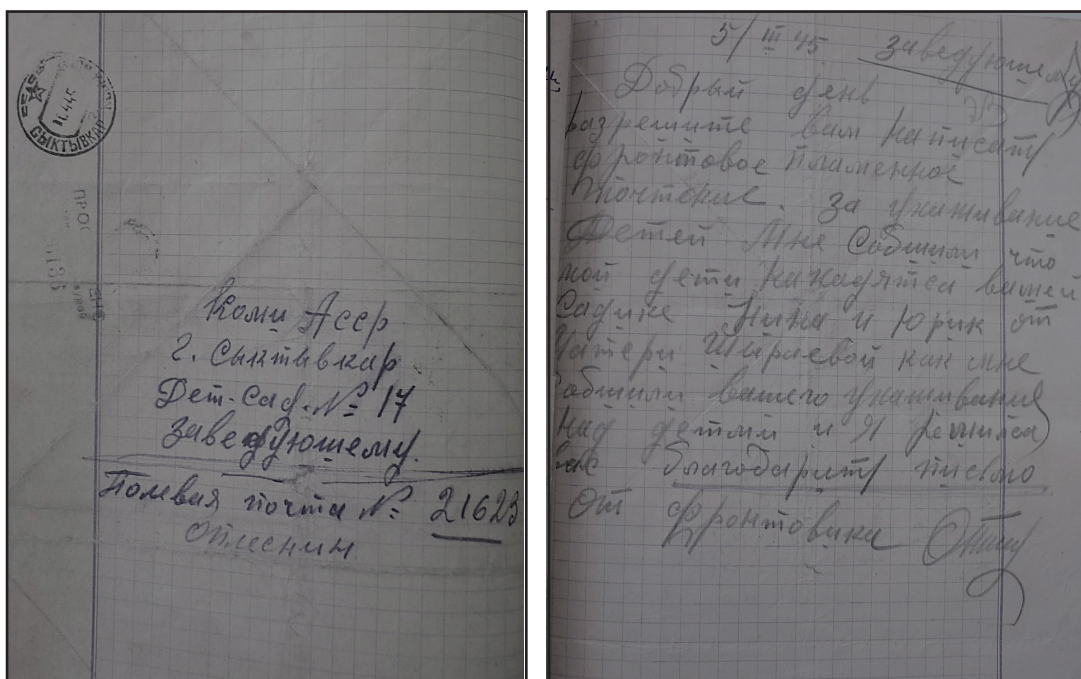 СЫКТЫВКАР
Коми Асср
г. Сыктывкар
Дет-Сад. № 17
Заведующему.
Полевая почта № 21623
5/III 45 Заведующему
Добрый день
разрешите вам написать
фронтовое пламенное
почтение. За ухаживание
Детей Мне Собшили что
мой дети находятса вашей
Садике Нина и Юрик от
Матери как мне
собшили вашего ухаживания
над детями и Я решился
вас благодарить писмо
От фронтовика